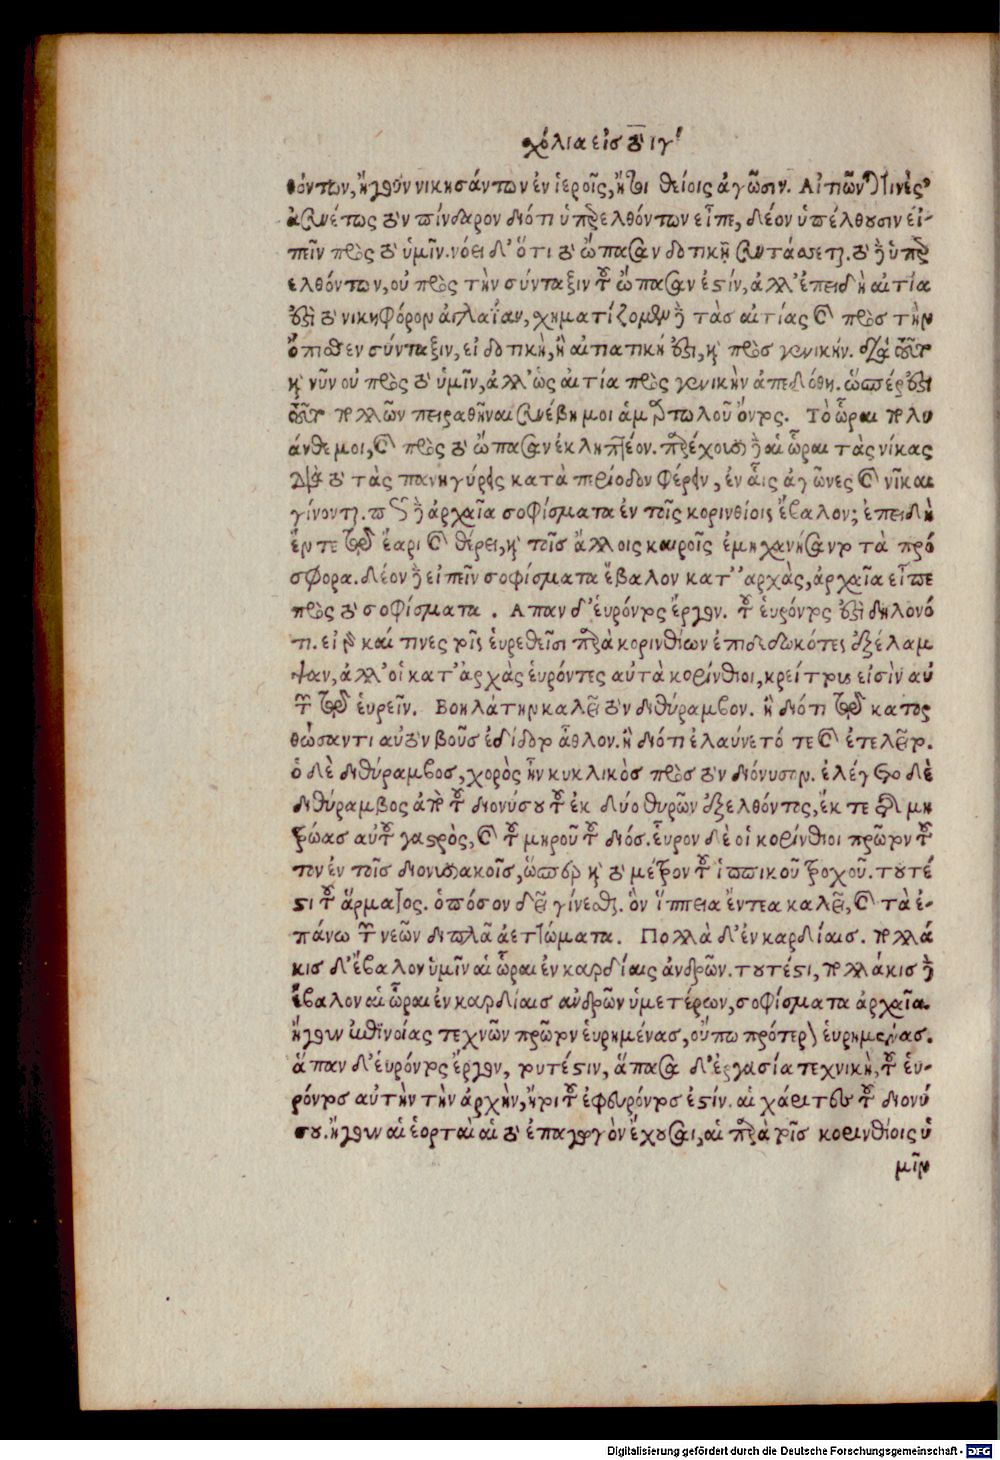 χόλια εἰς τὸ ιγ΄
θόντων, ἤγουν νικησάντων ἐν ἱεροῖς, ἤτοι θείοις ἀγῶσιν. Αἰτιῶνται τινὲς
ἀσυνέτως τὸν πίνδαρον διότι ὑπερελθόντων εἶπε, δέον ὑπέλθουσιν εἰ-
πεῖν πρὸς τὸ ὑμῖν. νόει δ' ὅτι τὸ ὤπασαν δοτικῇ συντάσσεται. τὸ δὲ ὑπερ
ελθόντων, οὐ πρὸς τὴν σύνταξιν τοῦ ὤπασαν ἐστὶν, ἀλλ' ἐπειδὴ αἰτία
ἐστὶ τὸ νικηφόρον ἀγλαΐαν, χηματίζομεν δὲ τὰς αἰτίας καὶ πρὸς τὴν
ὄπισθεν σύνταξιν, εἰ δοτικὴ, ἢ αἰτιατικὴ ἐστι, καὶ πρὸς γενικήν. διὰ τοῦτο
καὶ νῦν οὐ πρὸς τὸ ὑμῖν, ἀλλ' ὡς αἰτία πρὸς γενικὴν ἀπεδόθη. ὥσπερ ἐστι
τοῦτο πολλῶν πειραθῆναι συνέβη μοι ἁμαρτωλοῦ ὄντος. Τὸ ὧραι πολυ
άνθεμοι, καὶ πρὸς τὸ ὤπασαν ἐκληπτέον. παρέχουσι δὲ αἱ ὧραι τὰς νίκας
διὰ τὸ τὰς πανηγύρεις κατὰ περίοδον φέρειν, ἐν αἷς ἀγῶνες καὶ νῖκαι
γίνονται. πῶς δὲ ἀρχαῖα σοφίσματα ἐν τοῖς κορινθίοις ἔβαλον; ἐπειδὴ
ἔν τε τῷ ἔαρι καὶ θέρει, καὶ τοῖς ἄλλοις καιροῖς ἐμηχανήσαντο τὰ πρό
σφορα. δέον δὲ εἰπεῖν σοφίσματα ἔβαλον κατ' ἀρχὰς, ἀρχαῖα εἶπε
πρὸς τὸ σοφίσματα. Απαν δ' ἑυρόντος ἔργον. τοῦ ἑυρόντος ἐστὶ δηλονό
τι. εἰ γὰρ καί τινες τοῖς ἑυρεθεῖσι παρὰ κορινθίων ἐπιδεδωκότες ἐξέλαμ
ψαν, ἀλλ' οἱ κατ' ἀρχὰς ἑυρόντες αὐτὰ κορίνθιοι, κρείττους εἰσὶν αὐ
τῶν τῷ ἑυρεῖν. Βοηλάτην καλεῖ τὸν διθύραμβον. ἢ διότι τῷ κατορ
θώσαντι αὐτὸν βοῦς ἐδίδοτο ἆθλον. ἢ διότι ἐλαύνετό τε καὶ ἐτελεῖτο.
ὁ δὲ διθύραμβος, χορὸς ἦν κυκλικὸς πρὸς τὸν διόνυσον. ἐλέγετο δὲ
διθύραμβος ἀπὸ τοῦ διονύσου τοῦ ἐκ δύο θυρῶν ἐξελθόντος, ἔκ τε τῆς μη
τρώας αὐτοῦ γαστρὸς, καὶ τοῦ μηροῦ τοῦ διός. εὗρον δὲ οἱ κορίνθιοι πρῶτον τοῦ
τον ἐν τοῖς διονυσιακοῖς, ὥσπερ καὶ τὸ μέτρον τοῦ ἱππικοῦ τροχοῦ. τουτέ
στι τοῦ ἅρματος. ὁπόσον δεῖ γίνεσθαι. ὃν ἵππεια ἔντεα καλεῖ, καὶ τὰ ἐ-
πάνω τῶν νεῶν διπλᾶ ἀετώματα. Πολλὰ δ' ἐν καρδίαις. πολλά
κις δ' ἔβαλον ὑμῖν αἱ ὧραι ἐν καρδίαις ἀνδρῶν. τουτέστι, πολλάκις δὲ
ἔβαλον αἱ ὧραι ἐν καρδίαις ἀνδρῶν ὑμετέρων, σοφίσματα ἀρχαῖα.
ἤγουν ἐπινοίας τεχνῶν πρῶτον ἑυρημένας, οὔπω πρότερον ἑυρημένας.
ἅπαν δ' ἑυρόντος ἔργον, τουτέστιν, ἅπασα δ' ἐργασία τεχνικὴ, τοῦ ἑυ-
ρόντος αὐτὴν τὴν ἀρχὴν, ἤτοι τοῦ ἐφευρόντος ἐστίν. αἱ χάριτες τοῦ διονύ
σου. ἤγουν αἱ ἑορταὶ αἱ τὸ ἐπαγωγὸν ἔχουσαι, αἱ παρὰ τοῖς κορινθίοις ὑ
μῖν
Digitalisierung gefördert durch die Deutsche Forschungsgemeinschaft - DFG